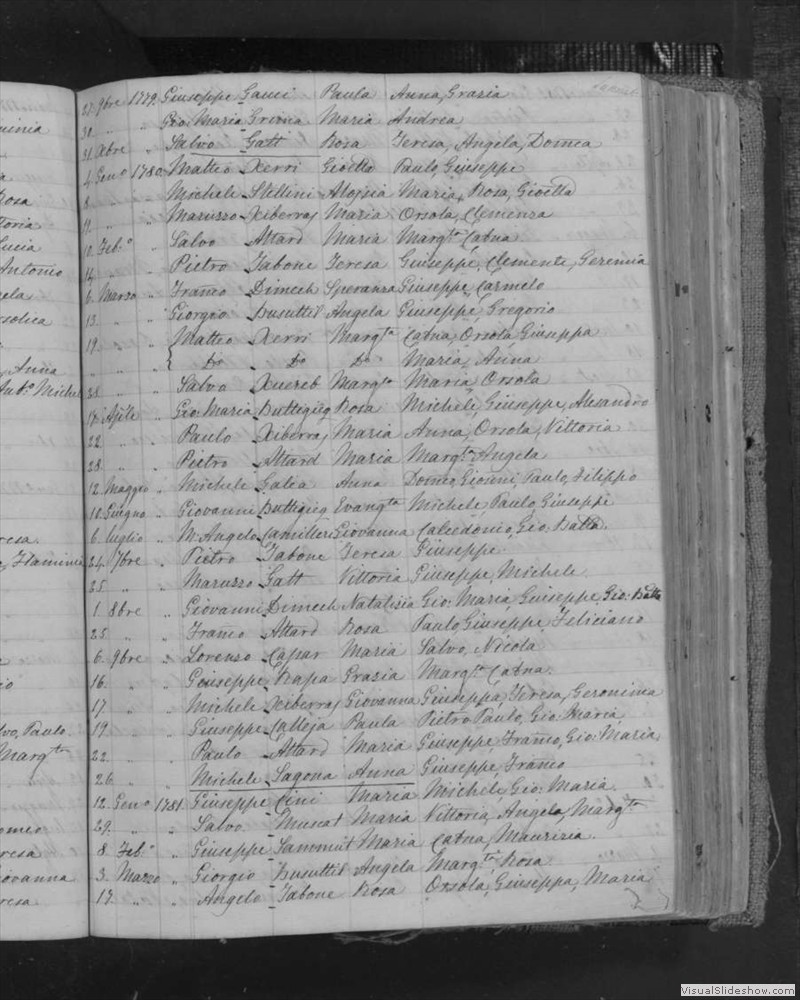 27. 9bre 1779. Giuseppe Gauci Paula Anna, Grazia
30. " " Gio: Maria Griona Maria Andrea
31. Xbre " Salvo Gatt Rosa Teresa, Angela, Domca
4. Geno 1780. Matteo Xerri Gioetta Paulo, Giuseppe
8. " " Michele Stellini Aloysia Maria, Rosa, Gioetta
19. " " Maruzzo Xiberras Maria Orsola, Clemenza
10. Febo " Salvo Attard Maria Margta Catna
14. " " Pietro Tabone Teresa Giuseppe, Clemente, Geremia
6. Marzo " Franco Dimech Speranza Giuseppe, Carmelo
13. " " Giorgio Busuttil Angela Giuseppe, Gregorio
19. " " Matteo Xerri Margta Catna, Orsola, Giuseppa
" " " { Do Do Do Maria, Anna
28. " " Salvo Xuereb Margta Maria, Orsola
17. Aprile " Gio: Maria Buttigieg Rosa Michele, Giuseppe, Alesandro
22. " " Paulo Xiberras Maria Anna, Orsola, Vittoria
28. " " Pietro Attard Maria Margta Angela
12. Maggio " Michele Galea Anna Domco, Gionni, Paulo, Filippo
10. Giugno " Giovanni Buttigieg Evangta Michele, Paulo, Giuseppe
6. luglio " M. Angelo Camilleri Giovanna Calcedonio, Gio: Batta
24. 7bre " Pietro Tabone Teresa Giuseppe
25. " " Maruzzo Gatt Vittoria Giuseppe, Michele
1. 8bre " Giovanni Dimech Natalizia Gio: Maria, Giuseppe, Gio: Batta
25. " " Franco Attard Rosa Paulo, Giuseppe, Feliciano
6. 9bre " Lorenzo Capar Maria Salvo, Nicola
16. " " Giuseppe Rapa Grazia Margta Catna
17 " " Michele Xiberras Giovanna Giuseppa, Teresa, Geronima
19 " " Giuseppe Calleja Paula Pietro Paulo, Gio: Maria
22. " " Paulo Attard Maria Giuseppe, Franco, Gio: Maria
26. " " Michele Sagona Anna Giuseppe, Franco
12. Geno 1781. Giuseppe Cini Maria Michele, Gio: Maria
29. " " Salvo Muscat Maria Vittoria, Angela, Margta
8. Febo " Giuseppe Sammut Maria Catna, Maurizia
3. Marzo " Giorgio Busuttil Angela Margta Rosa
17. " " Angelo Tabone Rosa Orsola, Giuseppa, Maria
VisualSlideshow.com